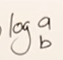 log a
b